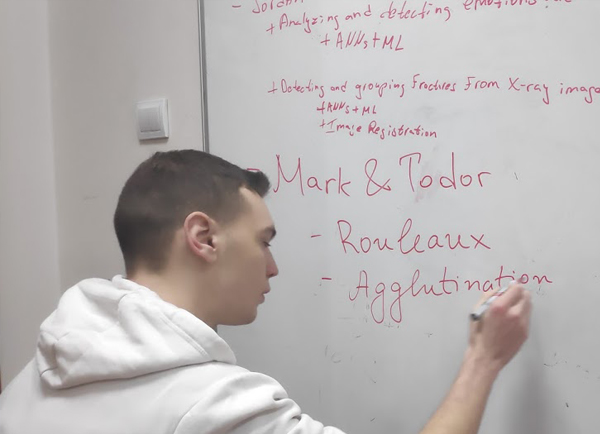 + Analyzing and detecting emotions
+ ANNs + ML
+ Detecting and grouping fractures from X-ray image
+ ANNs + ML
+ Image Registration
- Mark & Todor
- Rouleaux
- Agglutination